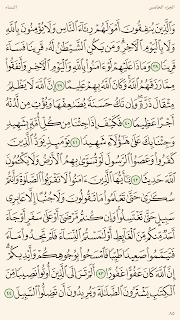 الجزء الخامس النساء
وَٱلَّذِينَ يُنفِقُونَ أَمۡوَٰلَهُمۡ رِئَآءَ ٱلنَّاسِ وَلَا يُؤۡمِنُونَ بِٱللَّهِ
وَلَا بِٱلۡيَوۡمِ ٱلۡأٓخِرِۗ وَمَن يَكُنِ ٱلشَّيۡطَٰنُ لَهُۥ قَرِينٗا فَسَآءَ
قَرِينٗا ٣٨ وَمَاذَا عَلَيۡهِمۡ لَوۡ ءَامَنُواْ بِٱللَّهِ وَٱلۡيَوۡمِ ٱلۡأٓخِرِ وَأَنفَقُواْ
مِمَّا رَزَقَهُمُ ٱللَّهُۚ وَكَانَ ٱللَّهُ بِهِمۡ عَلِيمًا ٣٩ إِنَّ ٱللَّهَ لَا يَظۡلِمُ
مِثۡقَالَ ذَرَّةٖۖ وَإِن تَكُ حَسَنَةٗ يُضَٰعِفۡهَا وَيُؤۡتِ مِن لَّدُنۡهُ
أَجۡرًا عَظِيمٗا ٤٠ فَكَيۡفَ إِذَا جِئۡنَا مِن كُلِّ أُمَّةِۭ بِشَهِيدٖ
وَجِئۡنَا بِكَ عَلَىٰ هَٰٓؤُلَآءِ شَهِيدٗا ٤١ يَوۡمَئِذٖ يَوَدُّ ٱلَّذِينَ
كَفَرُواْ وَعَصَوُاْ ٱلرَّسُولَ لَوۡ تُسَوَّىٰ بِهِمُ ٱلۡأَرۡضُ وَلَا يَكۡتُمُونَ
ٱللَّهَ حَدِيثٗا ٤٢ يَٰٓأَيُّهَا ٱلَّذِينَ ءَامَنُواْ لَا تَقۡرَبُواْ ٱلصَّلَوٰةَ وَأَنتُمۡ
سُكَٰرَىٰ حَتَّىٰ تَعۡلَمُواْ مَا تَقُولُونَ وَلَا جُنُبًا إِلَّا عَابِرِي
سَبِيلٍ حَتَّىٰ تَغۡتَسِلُواْۚ وَإِن كُنتُم مَّرۡضَىٰٓ أَوۡ عَلَىٰ سَفَرٍ أَوۡ جَآءَ
أَحَدٞ مِّنكُم مِّنَ ٱلۡغَآئِطِ أَوۡ لَٰمَسۡتُمُ ٱلنِّسَآءَ فَلَمۡ تَجِدُواْ مَآءٗ
فَتَيَمَّمُواْ صَعِيدٗا طَيِّبٗا فَٱمۡسَحُواْ بِوُجُوهِكُمۡ وَأَيۡدِيكُمۡۗ
إِنَّ ٱللَّهَ كَانَ عَفُوًّا غَفُورًا ٤٣ أَلَمۡ تَرَ إِلَى ٱلَّذِينَ أُوتُواْ نَصِيبٗا مِّنَ
ٱلۡكِتَٰبِ يَشۡتَرُونَ ٱلضَّلَٰلَةَ وَيُرِيدُونَ أَن تَضِلُّواْ ٱلسَّبِيلَ ٤٤
٨٥